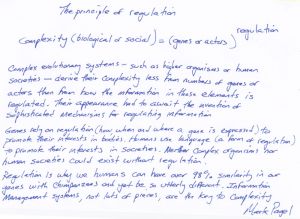 The principle of regulation
Complexity (biological or social) = (genes or actors) regulation
Complex evolutionary systems – such as higher organisms or human
societies – derive their complexity less from numbers of genes or
actors than from how the information in these elements is
regulated. Their appearance had to await the invention of
sophisticated mechanisms for regulating information
Genes rely on regulation (how when and where a gene is expressed) to
promote their interests in bodies. Humans use language (a form of regulation)
to promote their interests in societies. Neither complex organisms nor
human societies could exist without regulation.
Regulation is why we humans can have over 98% similarity in our
genes with Chimpanzees and yet be so utterly different. Information
Management systems, not lots of pieces, are the key to Complexity
Mark Pagel